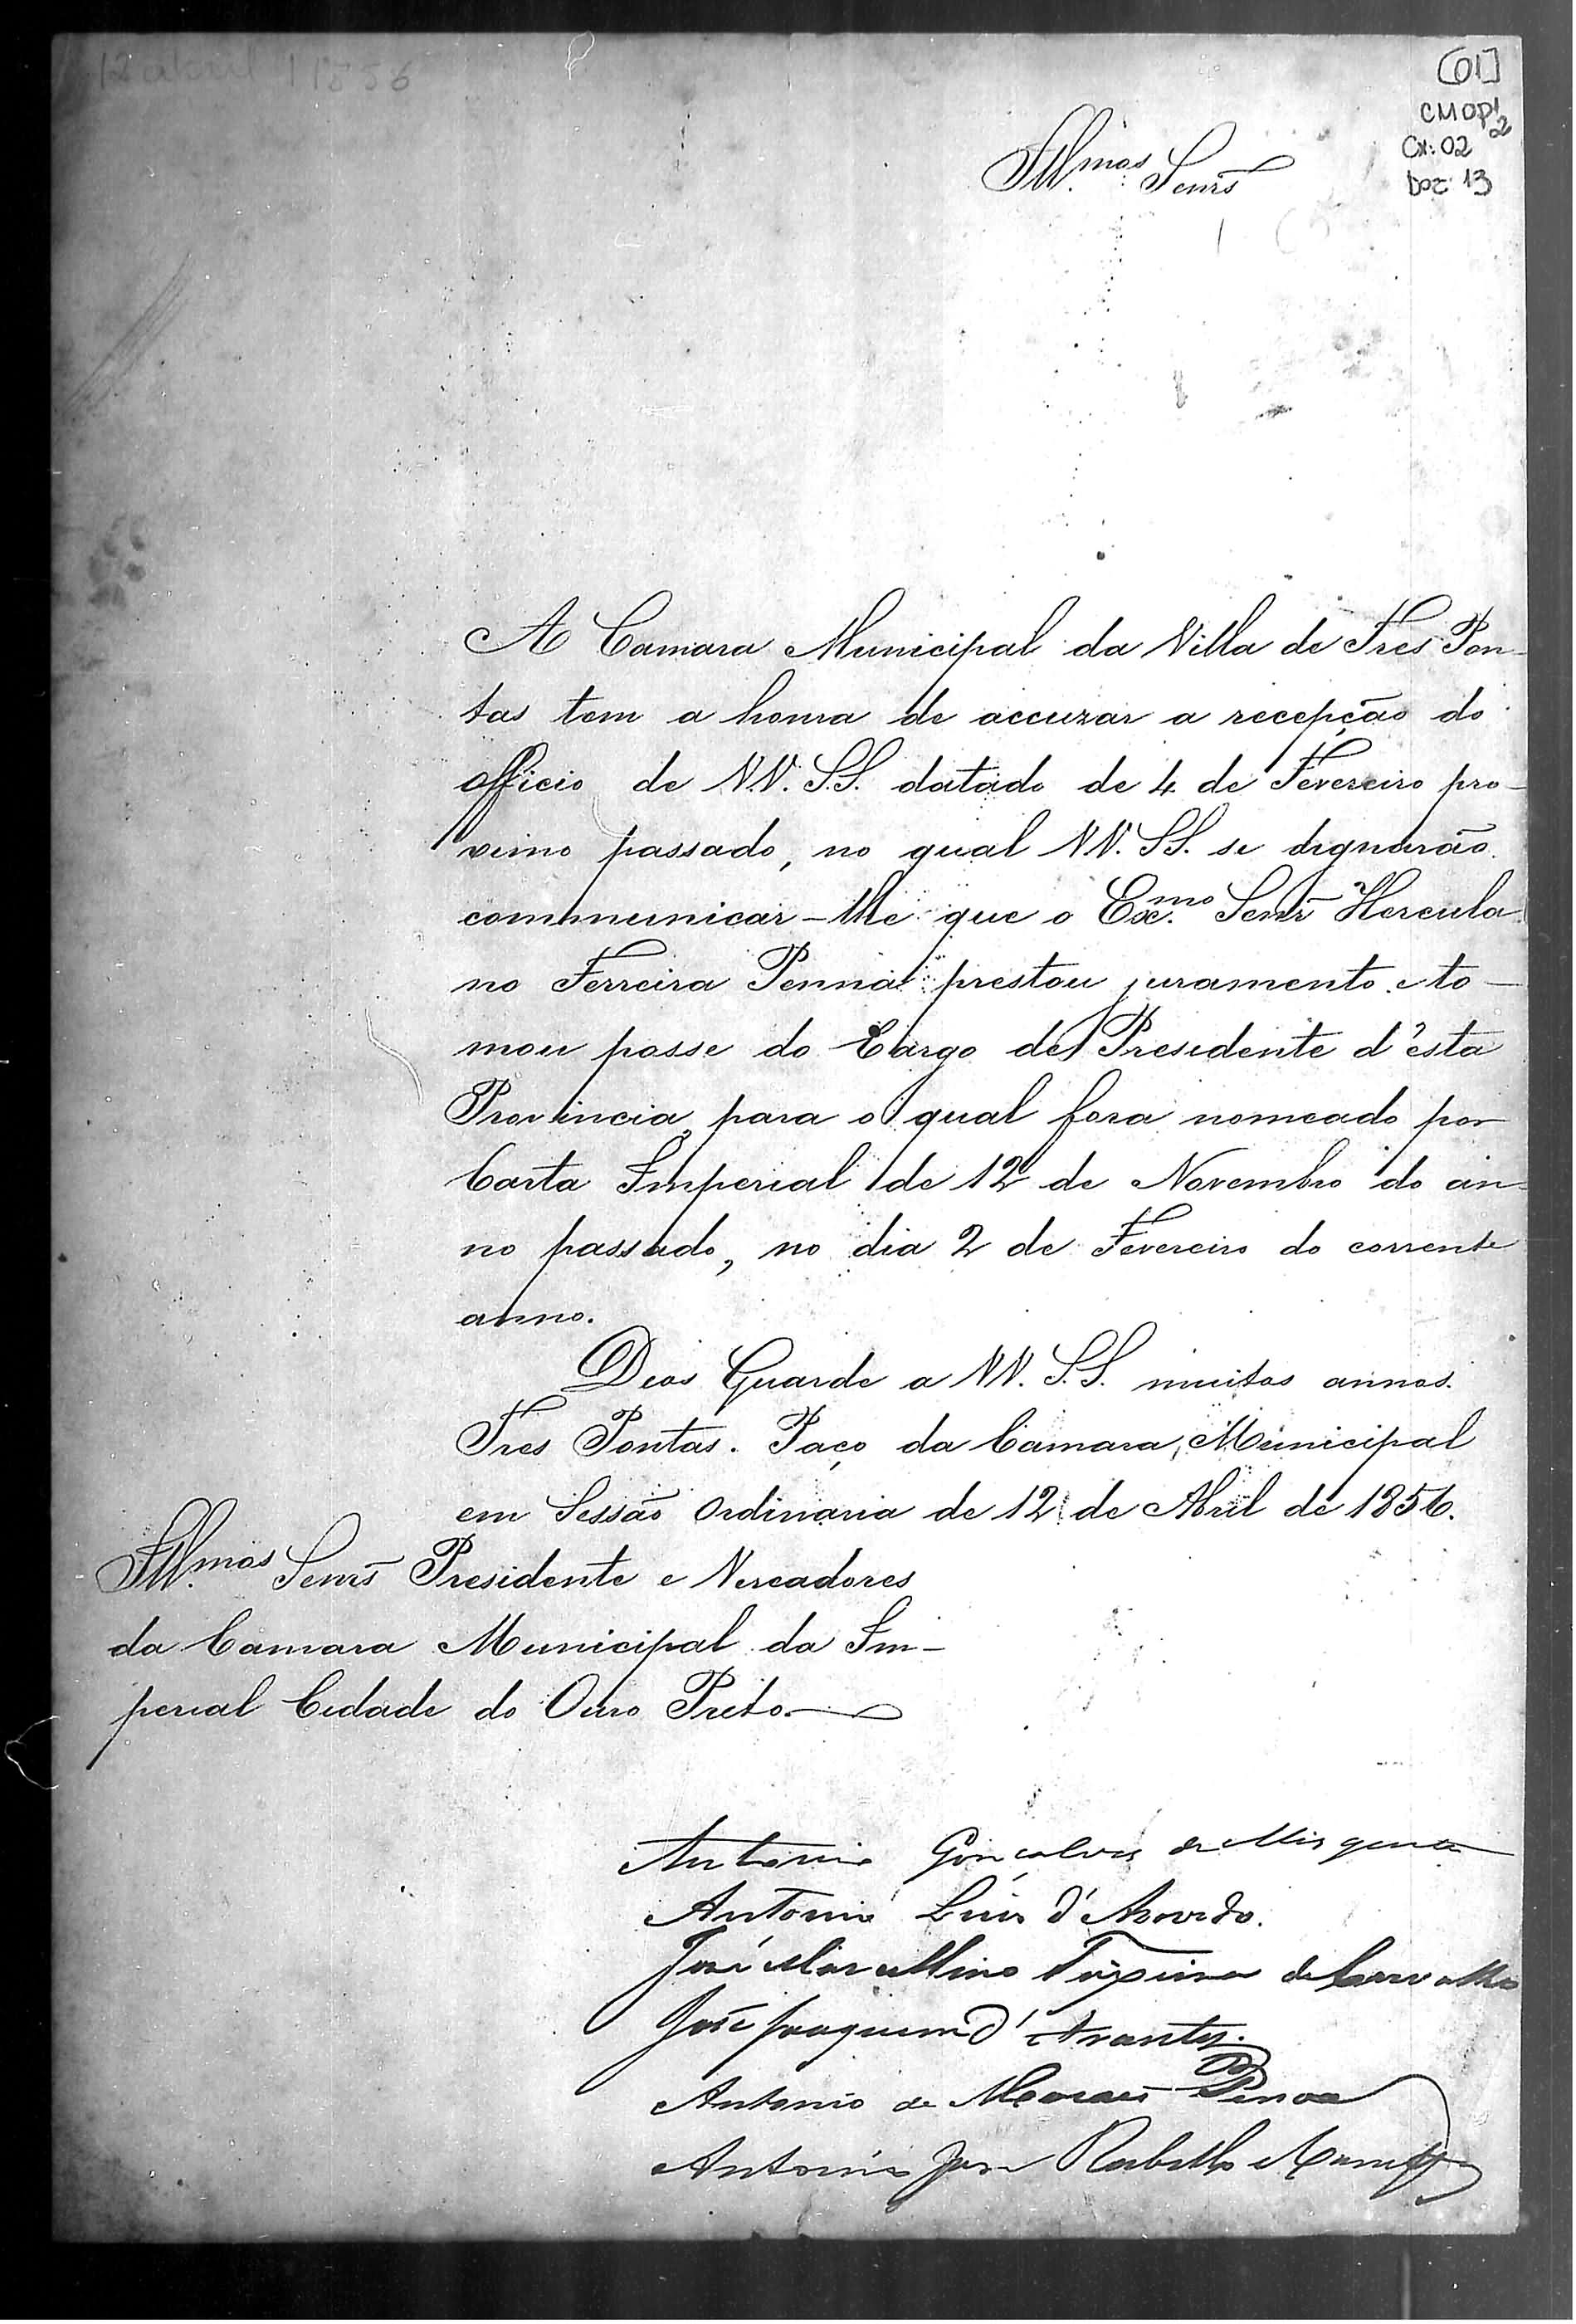 12 abril 1856
[01]
CMOP 2
Cx: 02
Doc: 13
Ill.mos Senrs
A Camara Municipal da Villa de Tres Pon-
tas tem a honra de accuzar a recepção do
officio de V.V. S.S. datado de 4 de Fevereiro pro-
ximo passado, no qual VV. SS. se dignarão
communicar-lhe que o Ex.mo Senr Hercula
no Ferreira Penna prestou juramento e to-
mou posse do Cargo de Presidente d'esta
Provincia, para o qual fora nomeado por
Carta Imperial de 12 de Novembro do an-
no passado, no dia 2 de Fevereiro do corrente
anno.
Deos Guarde a VV. S.S. muitos annos.
Tres Pontas. Paço da Camara Municipal
em Sessão Ordinaria de 12 de Abril de 1856.
Ill.mos Senrs Presidente e Vereadores
da Camara Municipal da Im-
perial Cidade do Ouro Preto
Antonio Gonçalves de Mesquita
Antonio Luis d'Azevedo.
José Marcellino Teixeira de Carvalho
José Joaquim d'Avantes.
Antonio de Moraes Penna
Antonio José Rabello e Campos